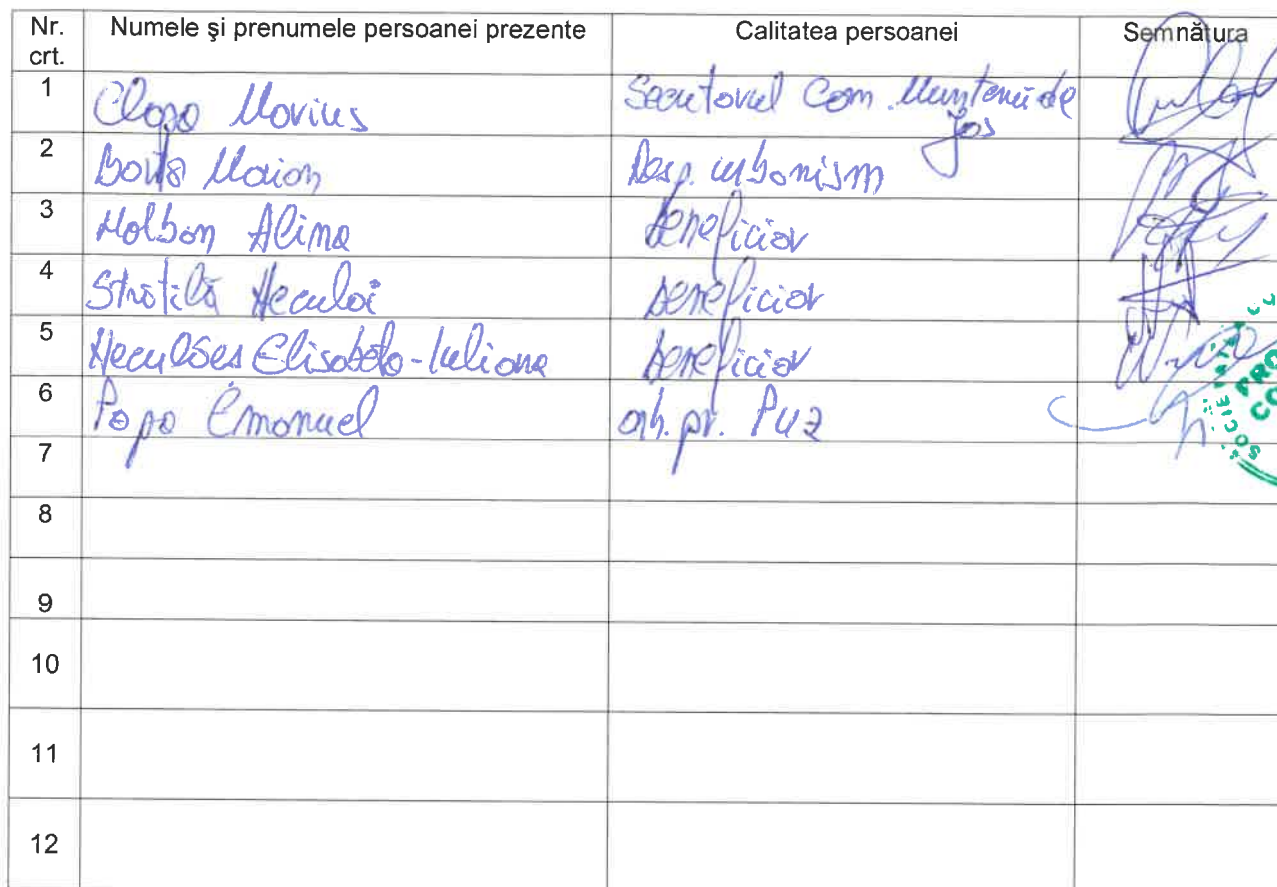 Nr. crt. Numele şi prenumele persoanei prezente Calitatea persoanei Semnătura
1 Clapa Marius Secretarul Com. Muntenii de Jos
2 Marian Resp. urbanism
3 Holban Alina beneficiar
4 Stratilă Neculai beneficiar
5 Elisabeta-Iuliana beneficiar
6 Popa Emanuel arh. pr. PUZ
7
8
9
10
11
12
SOCIETATE
PRO
CO